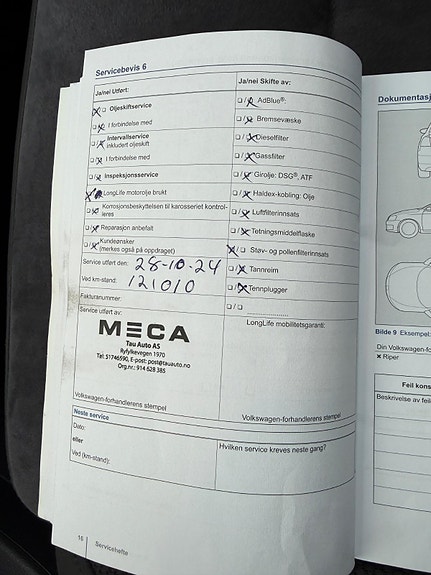 Servicebevis 6
Ja/nei Utført:
Oljeskiftservice
I forbindelse med
Intervallservice
inkludert oljeskift
I forbindelse med
Inspeksjonsservice
LongLife motorolje brukt
Korrosjonsbeskyttelsen til karosseriet kontrol-
leres
Reparasjon anbefalt
Kundeønsker
(merkes også på oppdraget)
Service utført den: 28-10-24
Ved km-stand: 121010
Fakturanummer:
Service utført av:
MECA
Tau Auto AS
Ryfylkevegen 1970
Tel: 51746590, E-post: post@tauauto.no
Org.nr.: 914 628 385
Volkswagen-forhandlerens stempel
Ja/nei Skifte av:
AdBlue®:
Bremsevæske
Dieselfilter
Gassfilter
Girolje: DSG®, ATF
Haldex-kobling: Olje
Luftfilterinnsats
Tetningsmiddelflaske
Støv- og pollenfilterinnsats
Tannreim
Tennplugger
LongLife mobilitetsgaranti:
Volkswagen-forhandlerens stempel
Neste service
Dato:
eller
Ved (km-stand):
Hvilken service kreves neste gang?
16 Servicehefte
Dokumentasj
Bilde 9 Eksempel:
Din Volkswagen-fo
× Riper
Feil kons
Beskrivelse av feil